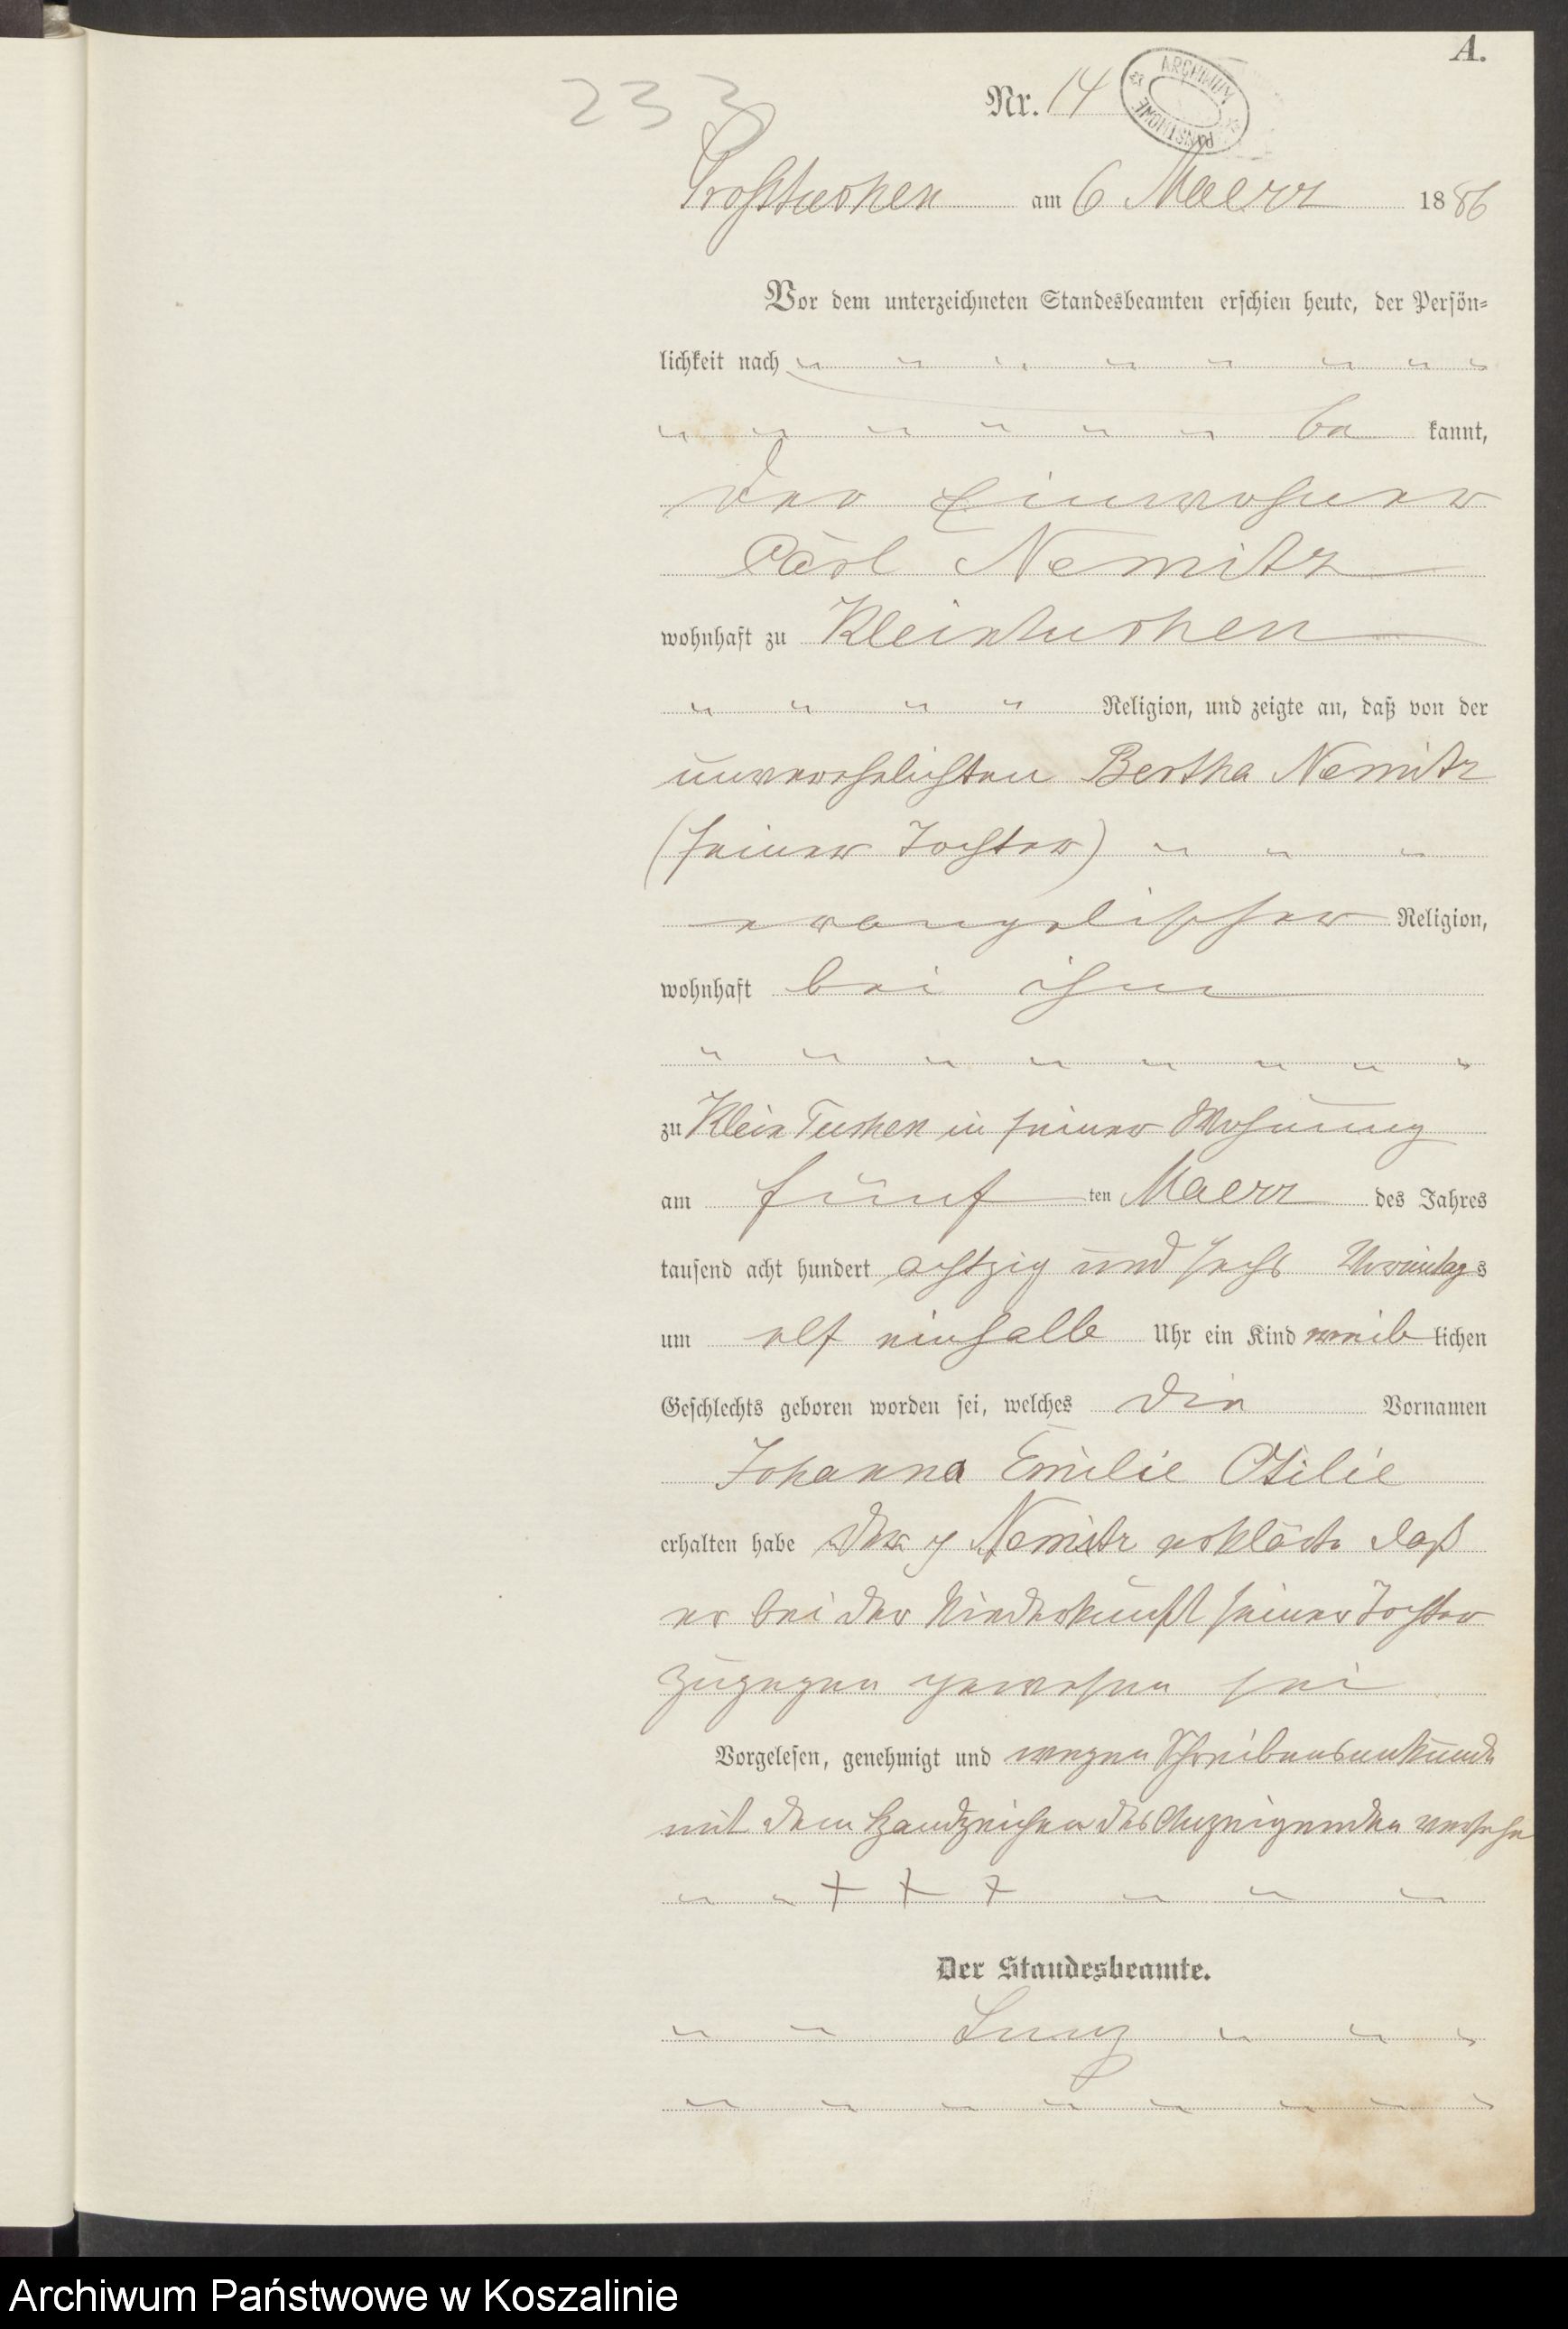 A.
233
Nr. 14
ARCHIWUM PAŃSTWOWE
Großtuchen am 6 Maerz 1886
Vor dem unterzeichneten Standesbeamten erschien heute, der Persön-
lichkeit nach
be kannt,
der Einwohner
Carl Nemitz
wohnhaft zu Kleintuchen
Religion, und zeigte an, daß von der
unverehelichten Bertha Nemitz
(seiner Tochter)
evangelischer Religion,
wohnhaft bei ihm
zu Klein Tuchen in seiner Wohnung
am fünf ten Maerz des Jahres
tausend acht hundert achtzig und sechs Vormittags
um elf einhalb Uhr ein Kind weib lichen
Geschlechts geboren worden sei, welches die Vornamen
Johanna Emilie Otilie
erhalten habe Nemitz erklärte daß
er bei der Niederkunft seiner Tochter
zugegen gewesen sei
Vorgelesen, genehmigt und wegen Schreibensunkunde
mit dem Handzeichen des Anzeigenden versehen
+ + +
Der Standesbeamte.
Archiwum Państwowe w Koszalinie